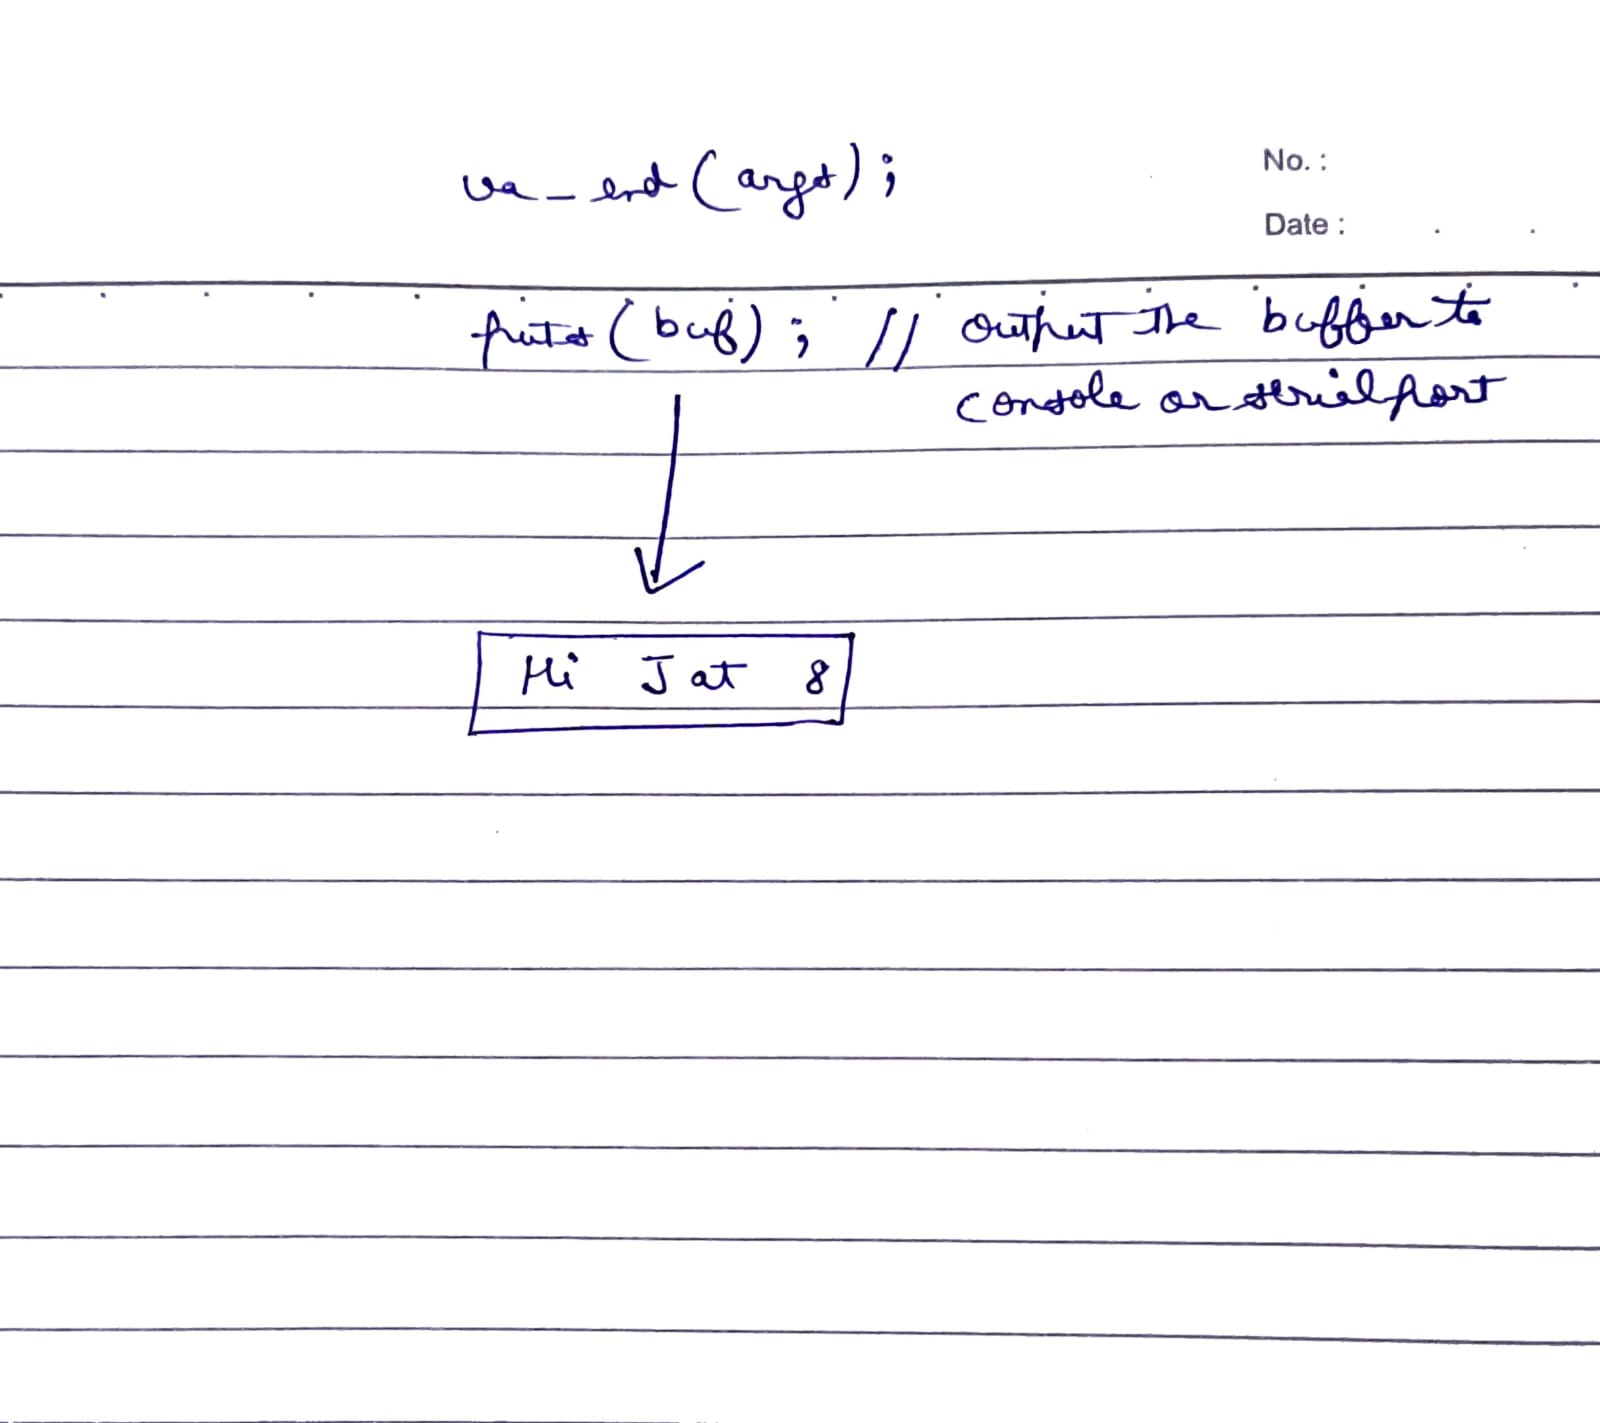 va_end(args);
No. :
Date :
puts(buf); // output the buffer to
console or serial port
Hi Jat 8